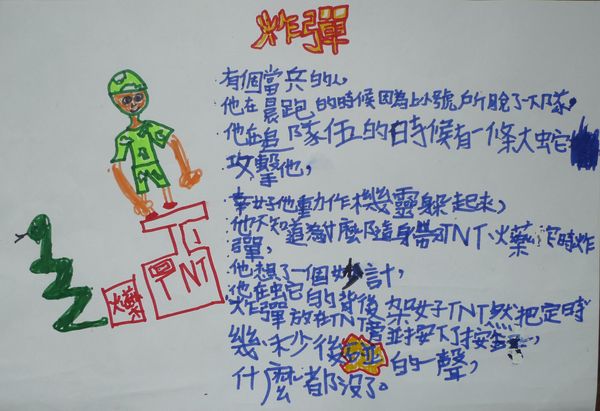 炸彈
有個當兵的人,
他在晨跑的時候因為上小號所脫了下隊,
他在追隊伍的時候有一條大蛇
攻擊他,
幸好他動作機靈躲起來,
他不知道為什麼隨身帶TNT火藥定時炸
彈,
他想了一個妙計,
他在蛇的背後架好TNT然把定時
炸彈放在TNT旁並按下按
幾秒後碰的一聲,
什麼都沒了。
TNT
火藥